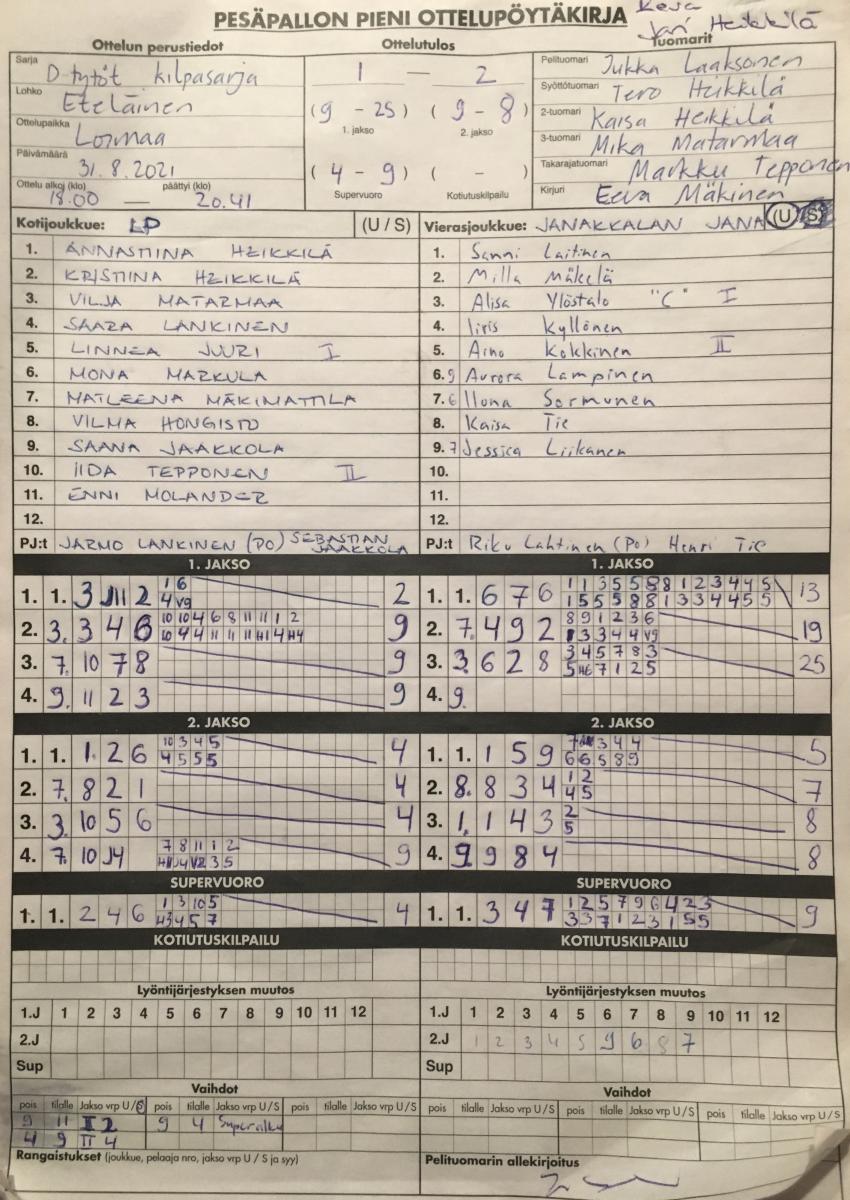 PESÄPALLON PIENI OTTELUPÖYTÄKIRJA
Jari Heikkilä
Ottelun perustiedot
Ottelutulos
Tuomarit
Sarja D-tytöt kilpasarja
Lohko Eteläinen
Ottelupaikka Loimaa
Päivämäärä 31.8.2021
Ottelu alkoi (klo) päättyi (klo)
18.00 — 20.41
1 — 2
(9 - 25) (9 - 8)
1. jakso 2. jakso
(4 - 9) ( - )
Supervuoro Kotiutuskilpailu
Pelituomari Jukka Laaksonen
Syöttötuomari Tero Heikkilä
2-tuomari Kaisa Heikkilä
3-tuomari Mika Matarmaa
Takarajatuomari Markku Tepponen
Kirjuri Eeva Mäkinen
Kotijoukkue: LP (U / S)
1. ANNASTIINA HEIKKILÄ
2. KRISTIINA HEIKKILÄ
3. VILJA MATARMAA
4. SAARA LANKINEN
5. LINNEA JUURI I
6. MONA MARKULA
7. MATLEENA MÄKIMATTILA
8. VILMA HONGISTO
9. SAANA JAAKKOLA
10. IIDA TEPPONEN II
11. ENNI MOLANDER
12.
PJ:t JARMO LANKINEN (PO) SEBASTIAN JAAKKOLA
Vierasjoukkue: JANAKKALAN JANA (U / S)
1. Sanni Laitinen
2. Milla Mäkelä
3. Alisa Ylöstalo "C" I
4. Iiris Kyllönen
5. Aino Kokkinen II
6. 9 Aurora Lampinen
7. 6 Ilona Sormunen
8. Kaisa Tie
9. 7 Jessica Liikanen
10.
11.
12.
PJ:t Riku Lahtinen (Po) Henri Tie
1. JAKSO
1. 1. 3 11 2 1 6 2
4 V9
2. 3. 3 4 6 10 10 4 6 8 11 11 1 2 9
3. 7. 10 7 8 9
4. 9. 11 2 3 9
2. JAKSO
1. 1. 1 2 6 10 3 4 5 4
4 5 5 5
2. 7. 8 2 1 4
3. 3. 10 5 6 4
4. 7. 10 7 8 11 1 2 9
SUPERVUORO
1. 1. 2 4 6 1 3 10 5 4
KOTIUTUSKILPAILU
1. JAKSO
1. 1. 6 7 6 1 1 3 5 5 8 8 1 2 3 4 4 5 13
1 5 5 5 8 8 1 3 3 4 4 5 5
2. 7. 4 9 2 8 9 1 2 3 6 19
3 3 4 4 V9
3. 3. 6 2 8 3 4 5 7 8 3 25
5 7 1 2 5
4. 9.
2. JAKSO
1. 1. 1 5 9 3 4 4 5
6 6 5 8 9
2. 8. 8 3 4 1 2 7
4 5
3. 1. 1 4 3 2 8
5
4. 9. 9 8 4 8
SUPERVUORO
1. 1. 3 4 7 1 2 5 7 9 6 4 2 3 9
3 3 7 1 2 3 1 5 5
KOTIUTUSKILPAILU
Lyöntijärjestyksen muutos
1.J 1 2 3 4 5 6 7 8 9 10 11 12
2.J
Sup
Lyöntijärjestyksen muutos
1.J 1 2 3 4 5 6 7 8 9 10 11 12
2.J 1 2 3 4 5 9 6 8 7
Sup
Vaihdot
pois tilalle Jakso vrp U/S pois tilalle Jakso vrp U/S pois tilalle Jakso vrp U/S
9 11 I 2 9 4 Superalku
4 9 II 4
Rangaistukset (joukkue, pelaaja nro, jakso vrp U / S ja syy)
Vaihdot
pois tilalle Jakso vrp U/S pois tilalle Jakso vrp U/S pois tilalle Jakso vrp U/S
Pelituomarin allekirjoitus